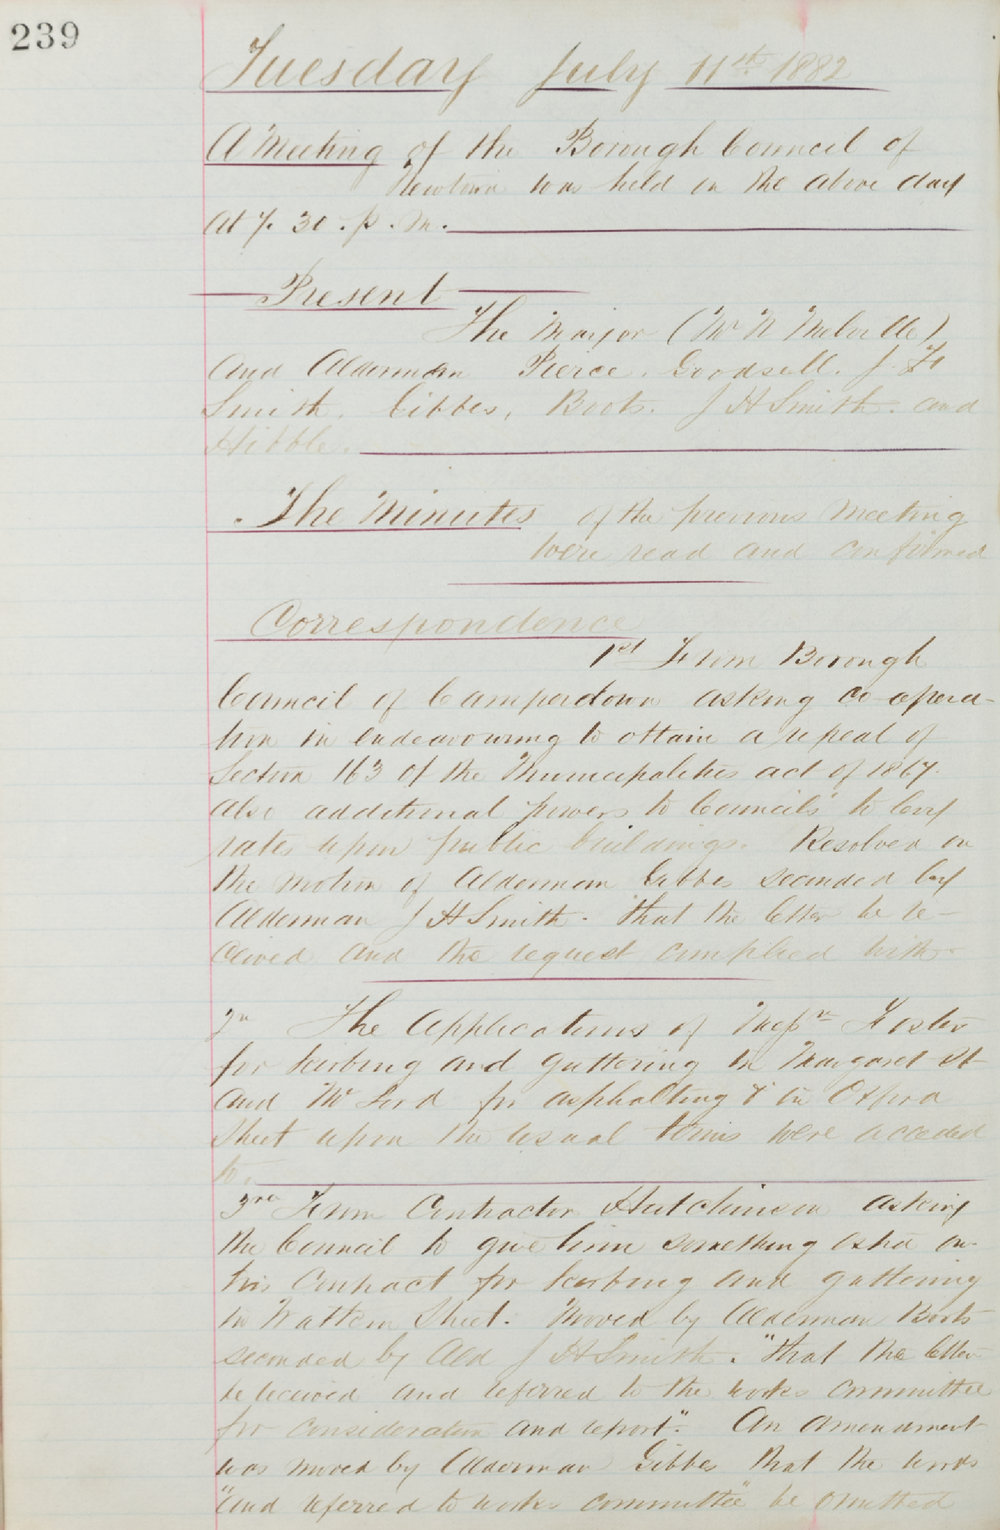 239
Tuesday July 11th 1882
A Meeting of the Borough Council of
Newtown was held on the above day
At 7. 30. p. m.
Present
The Mayor (Mr W Melville)
and Alderman Pierce. Goodsell. J. F.
Smith. Gibbes, Boots. J H Smith. and
Hibble.
The Minutes of the previous Meeting
were read and confirmed
Correspondence
1st From Borough
Council of Camperdown asking co-opera-
tion in endeavouring to obtain a repeal of
Section 163 of the Municipalities act of 1867.
also additional powers to Councils to levy
rates upon public buildings. Resolved on
the motion of Alderman Gibbes seconded by
Alderman J H Smith. that the letter be re-
ceived and the request complied with-
2n The Applications of Messrs Foster
for kerbing and guttering in Margaret St
and Mr Lord for asphalting & in Oxford
Street upon the usual terms were acceded
to.
3rd From Contractor Hutchinson asking
the Council to give him something extra on
his Contract for kerbing and guttering
in Watkin Street. Moved by Alderman Boots
seconded by Ald J H Smith. "that the letter
be received and referred to the works committee
for consideration and report". An amendment
was moved by Alderman Gibbes that the words
"and referred to works committee" be omitted